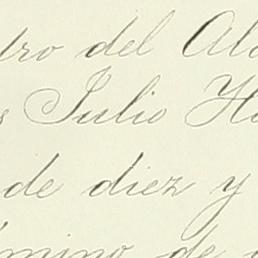 tro del Al
Julio H
de diez y
mino de